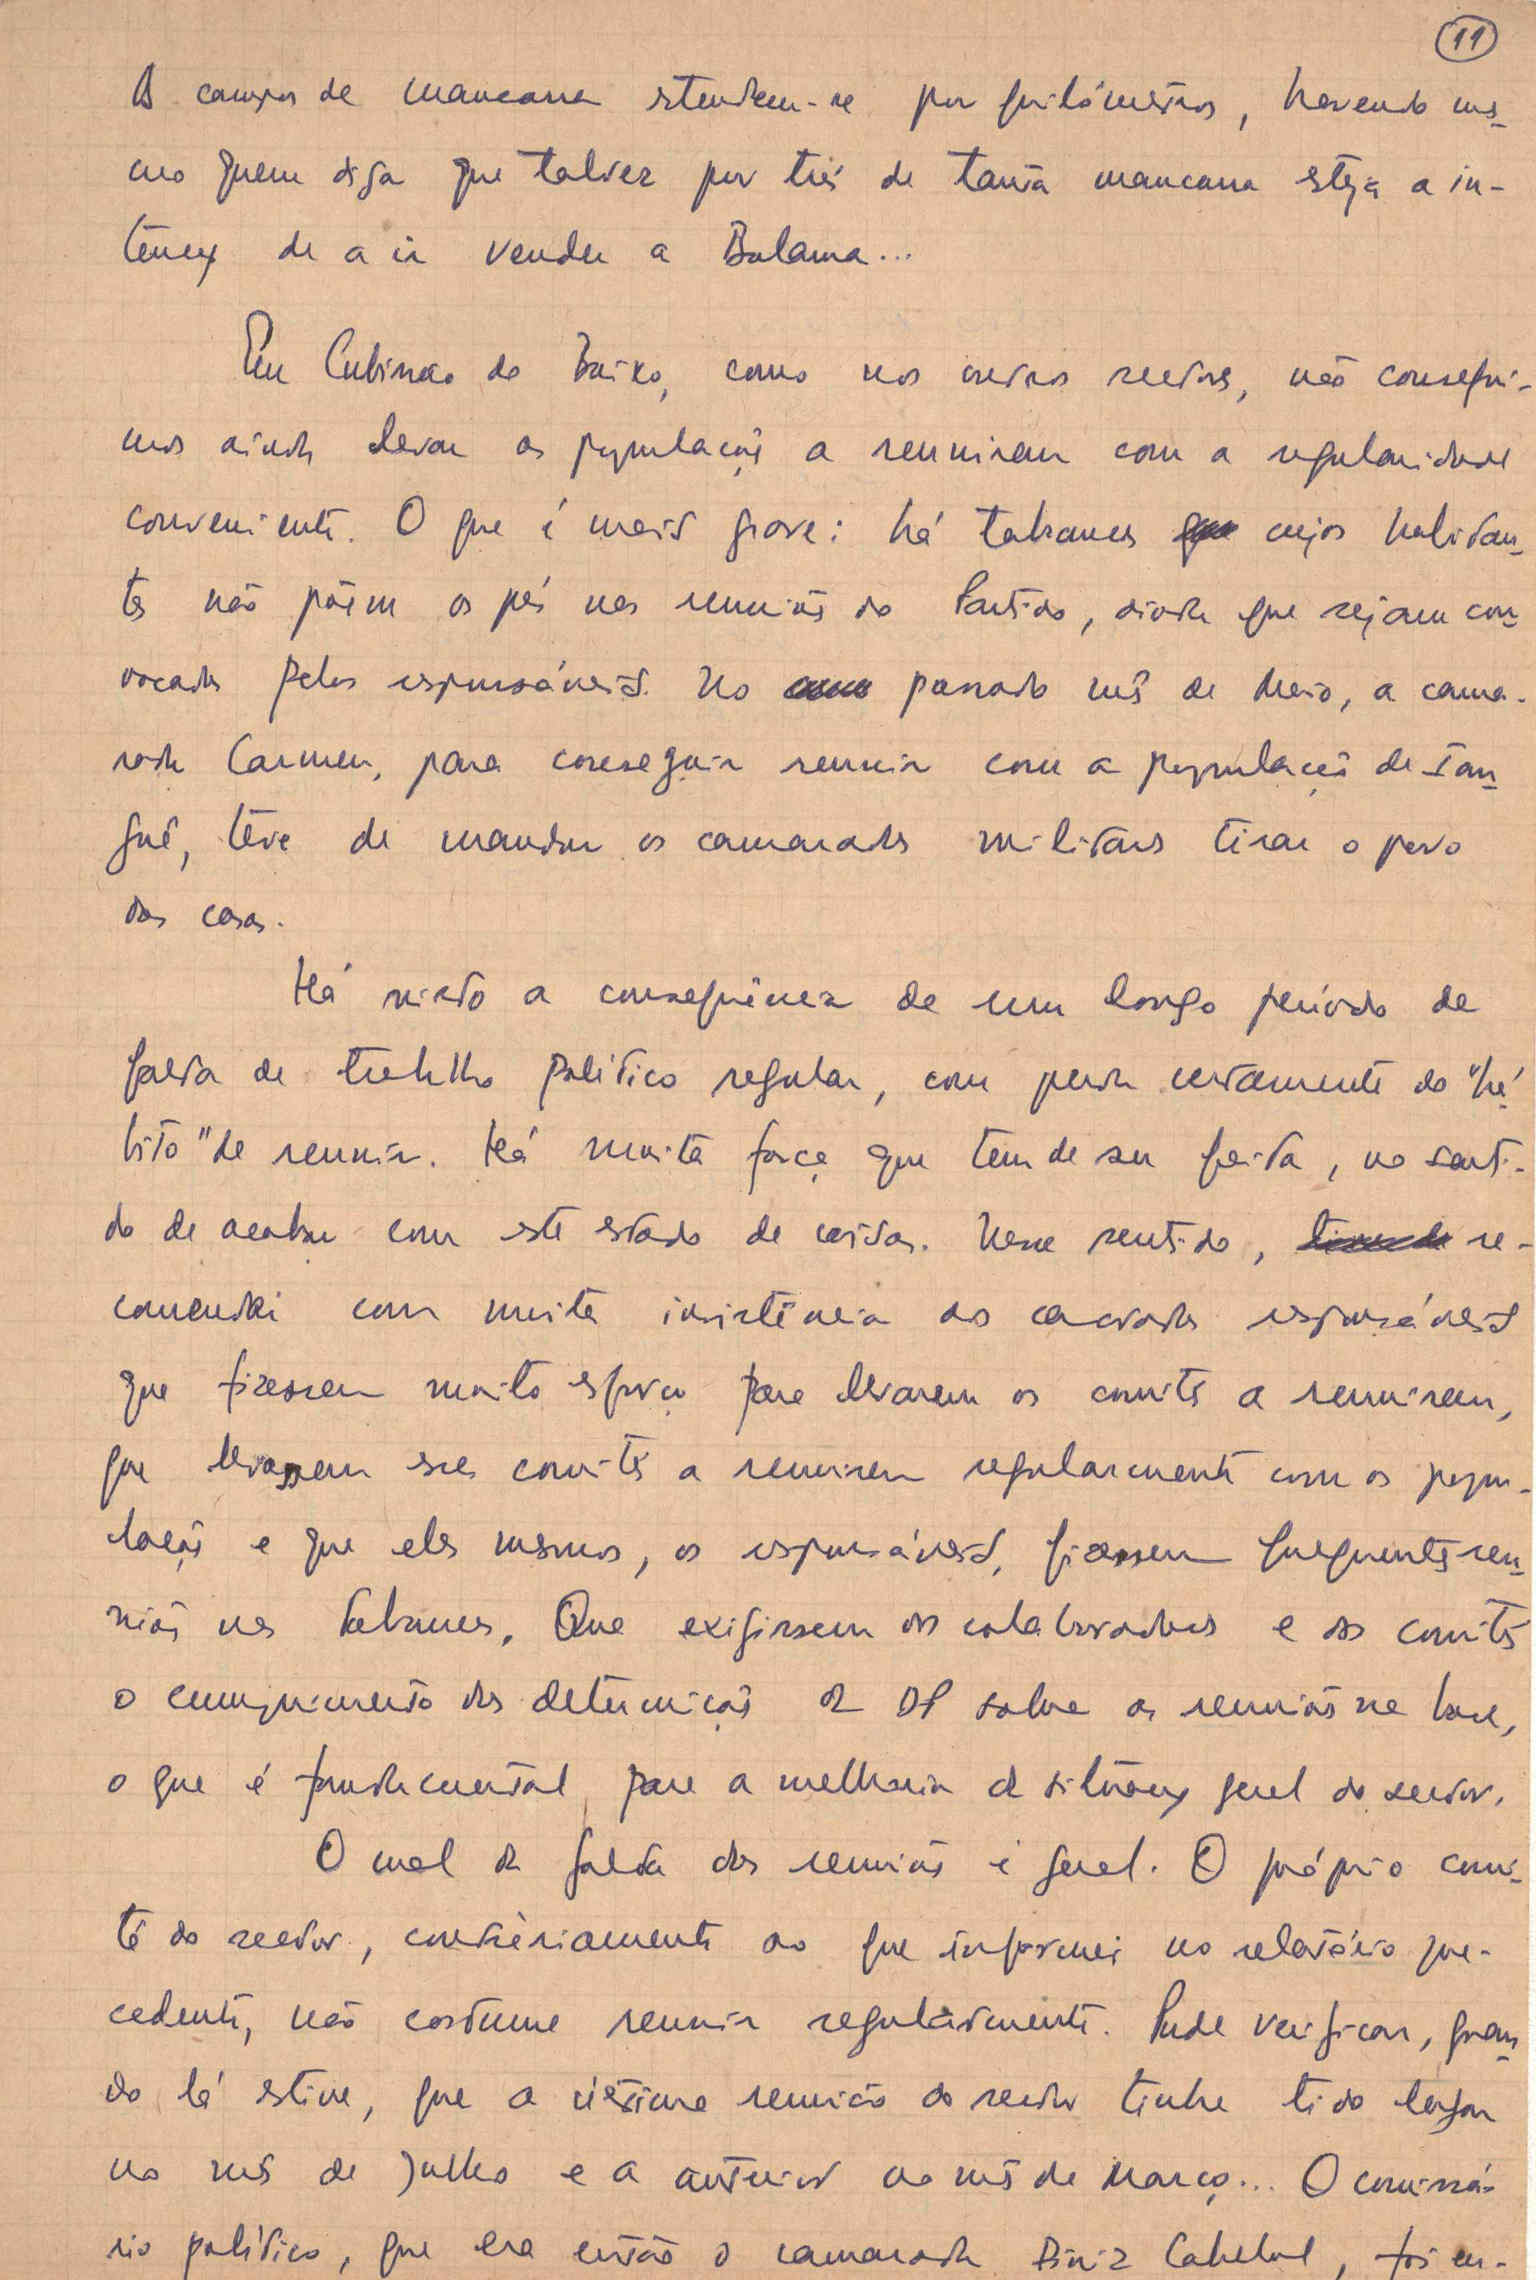 11
Os campos de mancarra estendem-se por quilómetros, havendo mes-
mo quem diga que talvez por trás de tanta mancarra esteja a in-
tenção de a ir vender a Bolama...
Em Cubisseco de Baixo, como nos outros sectores, não consegui-
mos ainda levar as populações a reunirem com a regularidade
conveniente. O que é mais grave: há tabancas cujos habitan-
tes não põem os pés nas reuniões do Partido, ainda que sejam con-
vocadas pelos responsáveis. No passado mês de Maio, a cama-
rada Carmen, para conseguir reunir com a população de Ian-
gué, teve de mandar os camaradas militares tirar o povo
das casas.
Há nisto a consequência de um longo período de
falta de trabalho político regular, com perda certamente do "há-
bito" de reunir. Há muita força que tem de ser feita, no senti-
do de acabar com este estado de coisas. Nesse sentido, re-
comendei com muita insistência aos camaradas responsáveis
que fizessem muito esforço para levarem os comités a reunirem,
que levassem esses comités a reunirem regularmente com as popu-
lações e que eles mesmos, os responsáveis, fizessem frequentes reu-
niões nas tabancas. Que exigissem aos colaboradores e aos comités
o cumprimento das determinações da DP sobre as reuniões na base,
o que é fundamental para a melhoria da situação geral do sector.
O mal da falta das reuniões é geral. O próprio comi-
té do sector, contràriamente ao que informei no relatório pre-
cedente, não costuma reunir regularmente. Pude verificar, quan-
do lá estive, que a última reunião do sector tinha tido lugar
no mês de Julho e a anterior no mês de Março... O comissá-
rio político, que era então o camarada Diniz Cabelol, foi en-